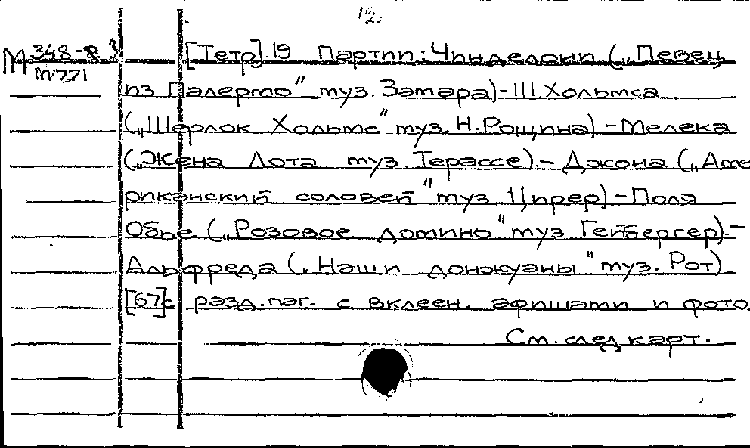 12.
М 348-8 3 [Тетр].19 Партии: Чинделони („Певец
М-771 из Палермо" муз. Замара)-Ш.Хольмса
(„Шерлок Хольмс" муз. Н.Рощина)-Мелека
(„Жена Лота муз. Терассе)-Джона („Аме
риканский соловей" муз. Цирер)-Поля
Обье („Розовое домино" муз Гейбергер)-
Альфреда („Наши донжуаны" муз. Рот)
[67]с разд.паг. с вклеен. афишами и фото.
См. след карт.